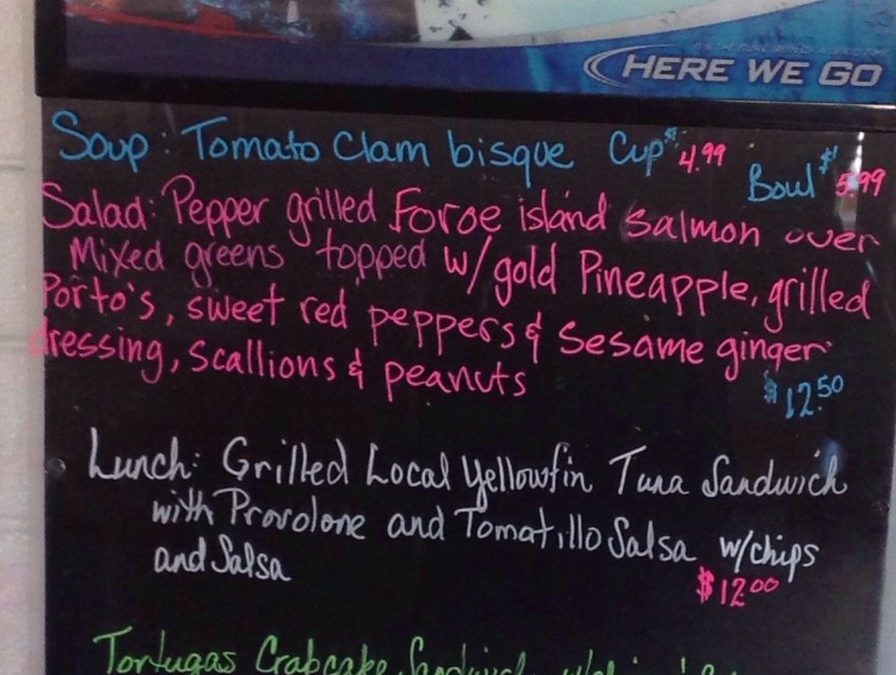 HERE WE GO
Soup: Tomato Clam bisque Cup $4.99
Bowl $5.99
Salad: Pepper grilled Foroe island Salmon over
Mixed greens topped w/gold Pineapple, grilled
Porto's, sweet red peppers & Sesame ginger
dressing, scallions & peanuts
$12.50
Lunch: Grilled Local Yellowfin Tuna Sandwich
with Provolone and Tomatillo Salsa w/chips
and Salsa
$12.00
Tortugas Crabcake Sandwich